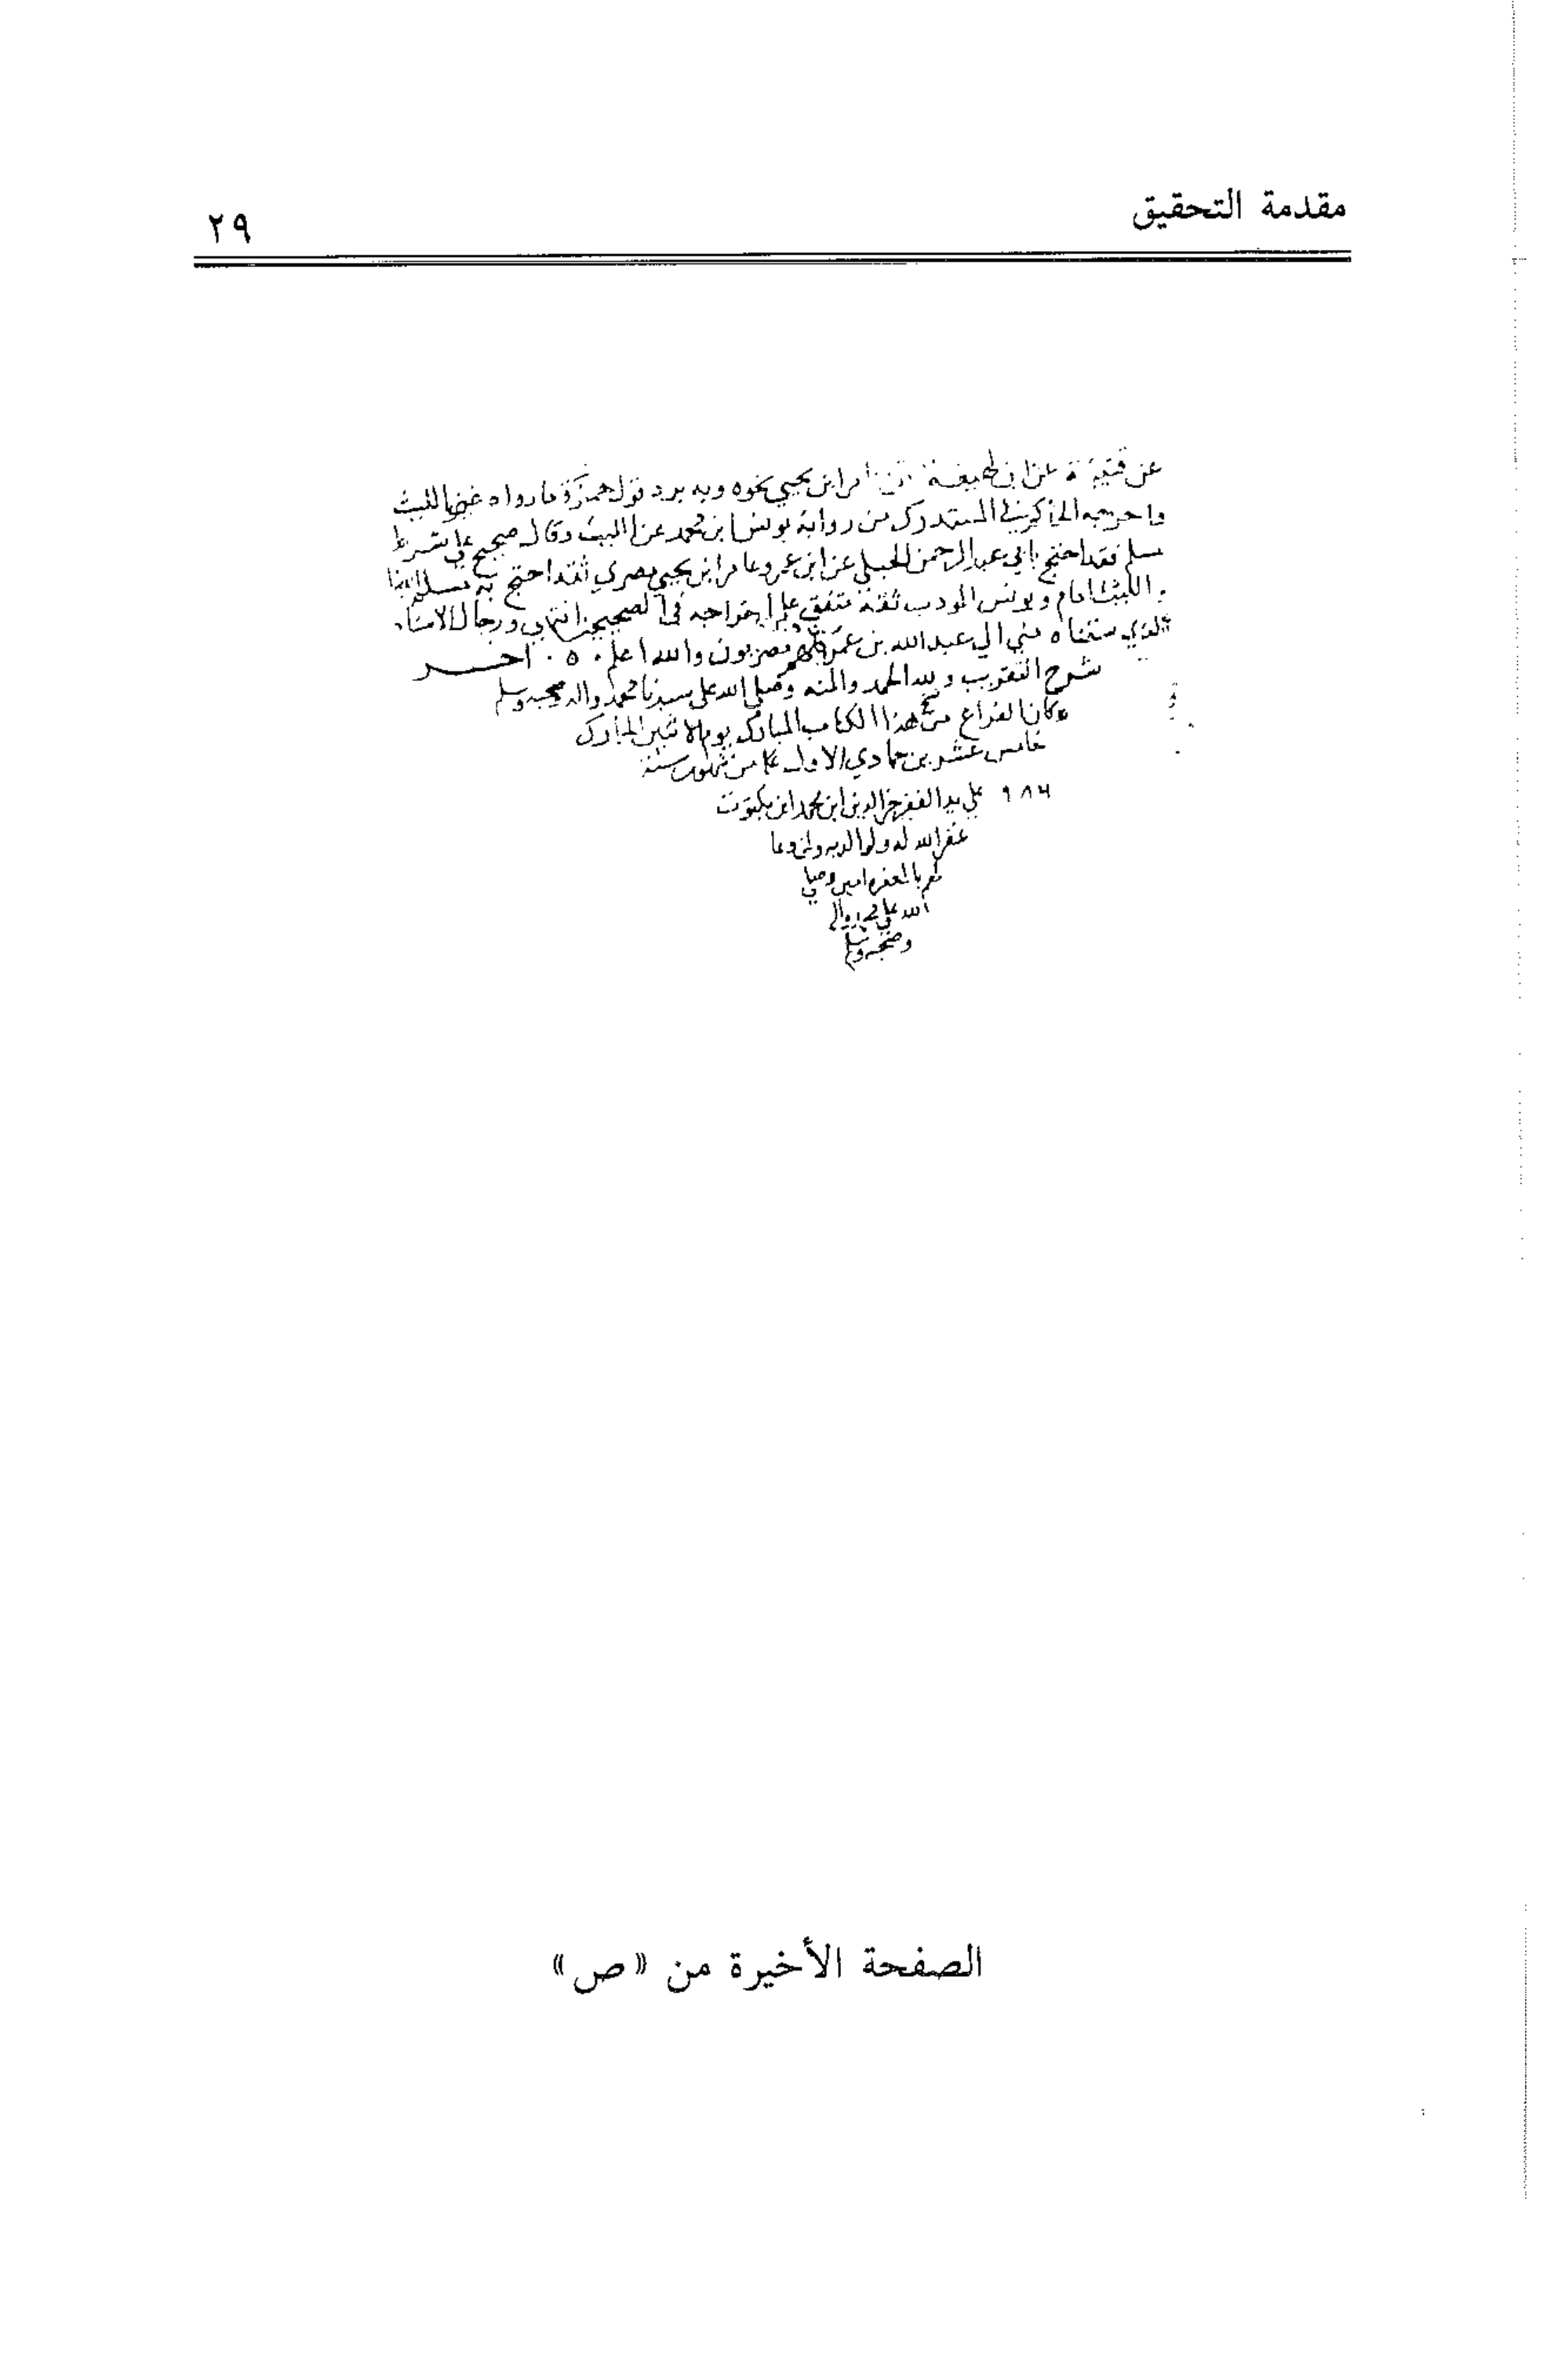 مقدمة التحقيق
٢٩
عن قتيبة عن ابن لهيعة عن عامر ابن يحيي نحوه وبه يرد قول حمزة ما رواه غير الليث
واخرجه الحاكم في المستدرك من رواية يونس ابن محمد عن الليث وقال صحيح علي شرط
مسلم فقد احتج بابي عبد الرحمن الحبلي عن ابن عمرو وعامر ابن يحيي مصري ثقة احتج به مسلم ايضا
والليث امام ويونس المودب ثقة متفق علي اخراجه في الصحيحين انتهي ورجال الاسناد
الذي سقناه مني الي عبد الله بن عمرو كلهم مصريون والله اعلم . ه . اخر
شرح التقريب ولله الحمد والمنه وصلي الله علي سيدنا محمد واله وصحبه وسلم
وكان الفراغ من نسخ هذا الكتاب المبارك يوم الاثنين المبارك
خامس عشرين جمادي الاول من شهور سنة
٩٨٦ علي يد الفقير الدين ابن محمد ابن
غفر الله له ولوالديه ولمن دعا
لهم بالمغفره امين وصلي
الله علي محمد واله
وصحبه وسلم
الصفحة الأخيرة من «ص»